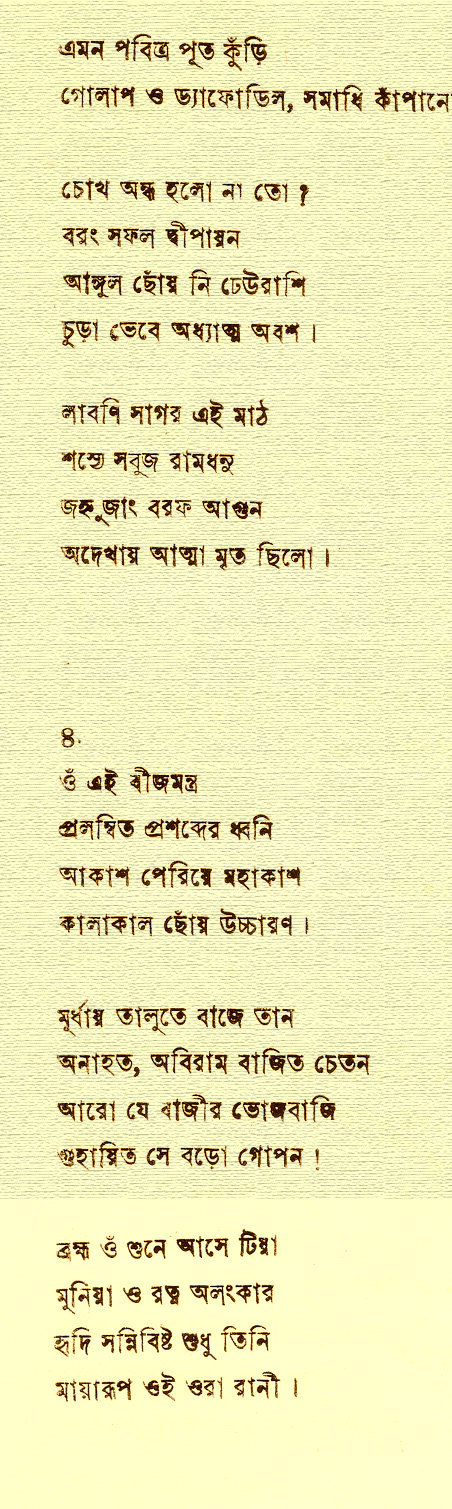 এমন পবিত্র পূত কুঁড়ি
গোলাপ ও ড্যাফোডিল, সমাধি কাঁপানো
চোখ অন্ধ হলো না তো ?
বরং সফল দ্বীপায়ন
আঙ্গুল ছোঁয় নি ঢেউরাশি
চুড়া ভেবে অধ্যাত্ম অবশ ।
লাবণি সাগর এই মাঠ
শস্যে সবুজ রামধনু
বরফ আগুন
অদেখায় আত্মা মৃত ছিলো ।
৪.
ওঁ এই বীজমন্ত্র
প্রলম্বিত প্রশব্দের ধ্বনি
আকাশ পেরিয়ে মহাকাশ
কালাকাল ছোঁয় উচ্চারণ ।
মূর্ধায় তালুতে বাজে তান
অনাহত, অবিরাম বাজিত চেতন
আরো যে বাজীর ভোজবাজি
গুহায়িত সে বড়ো গোপন !
ব্রহ্ম ওঁ শুনে আসে টিয়া
মুনিয়া ও রত্ন অলংকার
হৃদি সন্নিবিষ্ট শুধু তিনি
মায়ারূপ ওই ওরা রানী ।